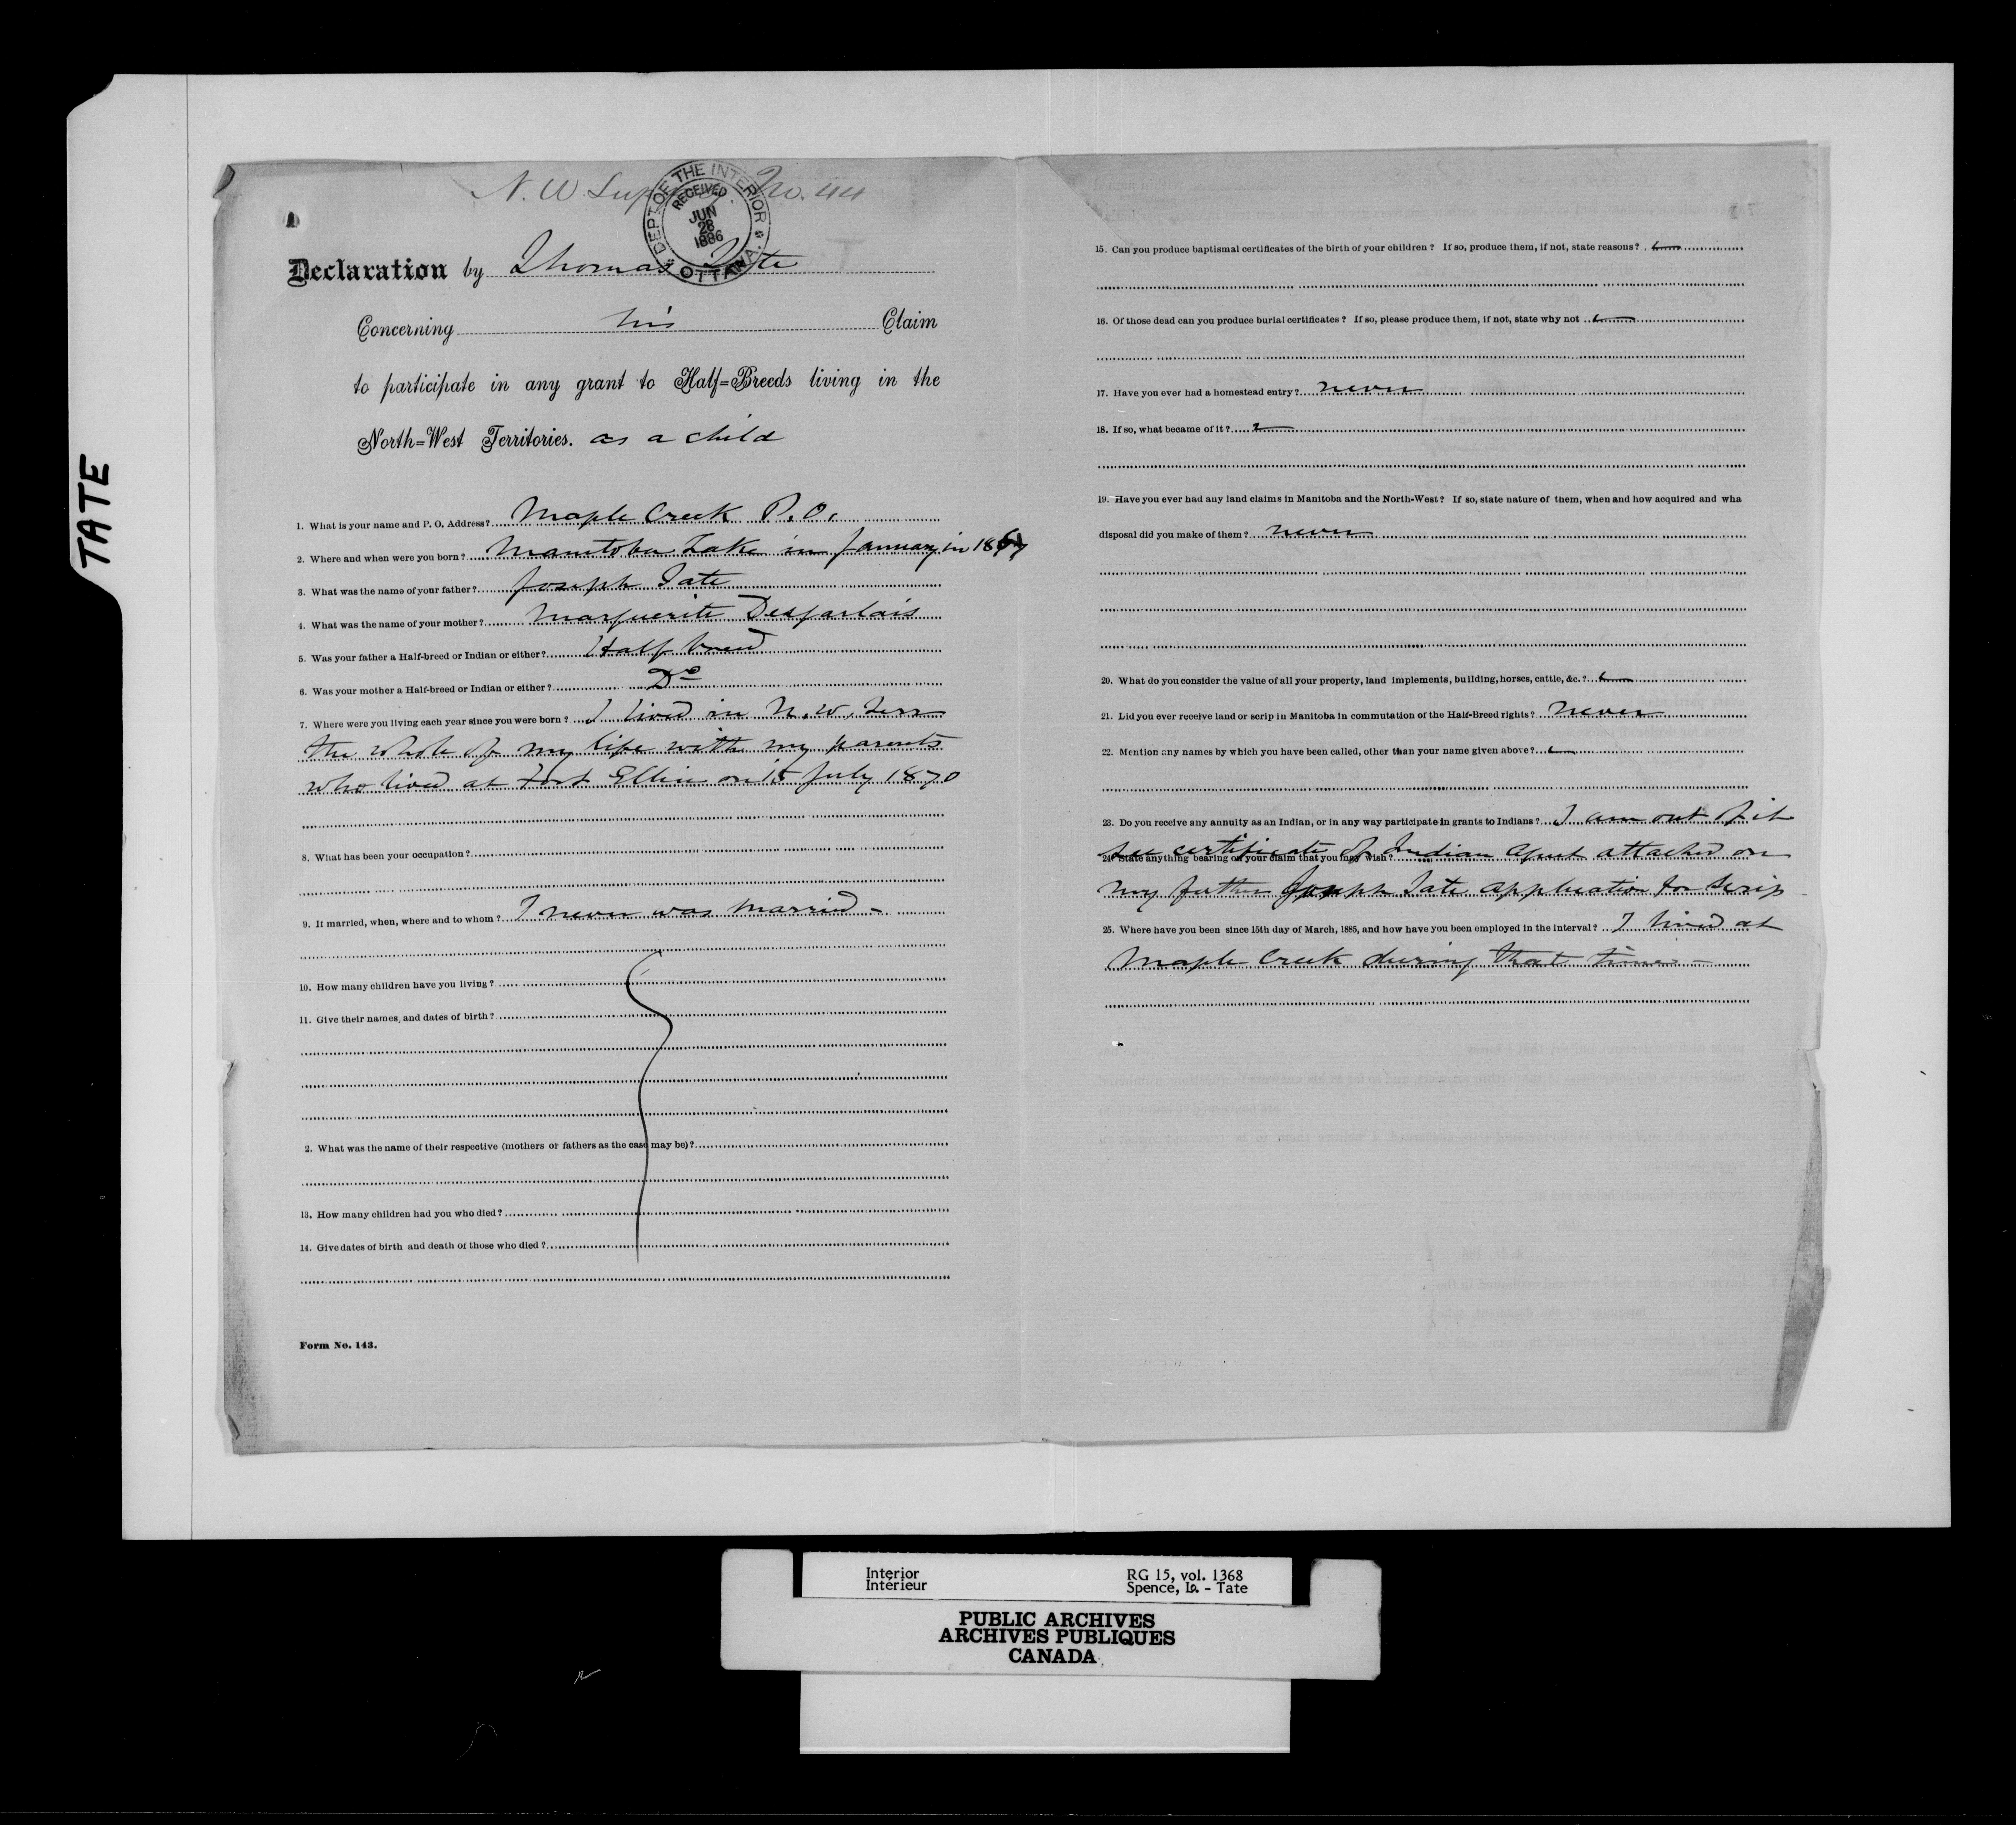 TATE
N. W. No. 44
DEPT OF THE INTERIOR
RECEIVED
JUN
28
1886
OTTAWA.
Declaration by Thomas Tate
Concerning his Claim
to participate in any grant to Half=Breeds living in the
North=West Territories. as a child
1. What is your name and P. O. Address? Maple Creek P. O.
2. Where and when were you born? Manitoba Lake in January in 18
3. What was the name of your father? Joseph Tate
4. What was the name of your mother? Marguerite Desjarlais
5. Was your father a Half-breed or Indian or either? Half breed
6. Was your mother a Half-breed or Indian or either? Do
7. Where were you living each year since you were born? I lived in N. W. Terr
the whole of my life with my parents
who lived at Fort Ellice on 15 July 1870
8. What has been your occupation?
9. If married, when, where and to whom? I never was married -
10. How many children have you living?
11. Give their names, and dates of birth?
2. What was the name of their respective (mothers or fathers as the case may be)?
13. How many children had you who died?
14. Give dates of birth and death of those who died?
Form No. 143.
15. Can you produce baptismal certificates of the birth of your children? If so, produce them, if not, state reasons?
16. Of those dead can you produce burial certificates? If so, please produce them, if not, state why not
17. Have you ever had a homestead entry? never
18. If so, what became of it?
19. Have you ever had any land claims in Manitoba and the North-West? If so, state nature of them, when and how acquired and wha
disposal did you make of them? never
20. What do you consider the value of all your property, land implements, building, horses, cattle, &c.?
21. Did you ever receive land or scrip in Manitoba in commutation of the Half-Breed rights? never
22. Mention any names by which you have been called, other than your name given above?
23. Do you receive any annuity as an Indian, or in any way participate in grants to Indians? I am out of it
see certificate of Indian Agent attached on
24. State anything bearing on your claim that you may wish?
my father Joseph Tate application for Scrip
25. Where have you been since 15th day of March, 1885, and how have you been employed in the interval? I lived at
Maple Creek during that time -
Interior
Intérieur
RG 15, vol. 1368
Spence, Is. - Tate
PUBLIC ARCHIVES
ARCHIVES PUBLIQUES
CANADA